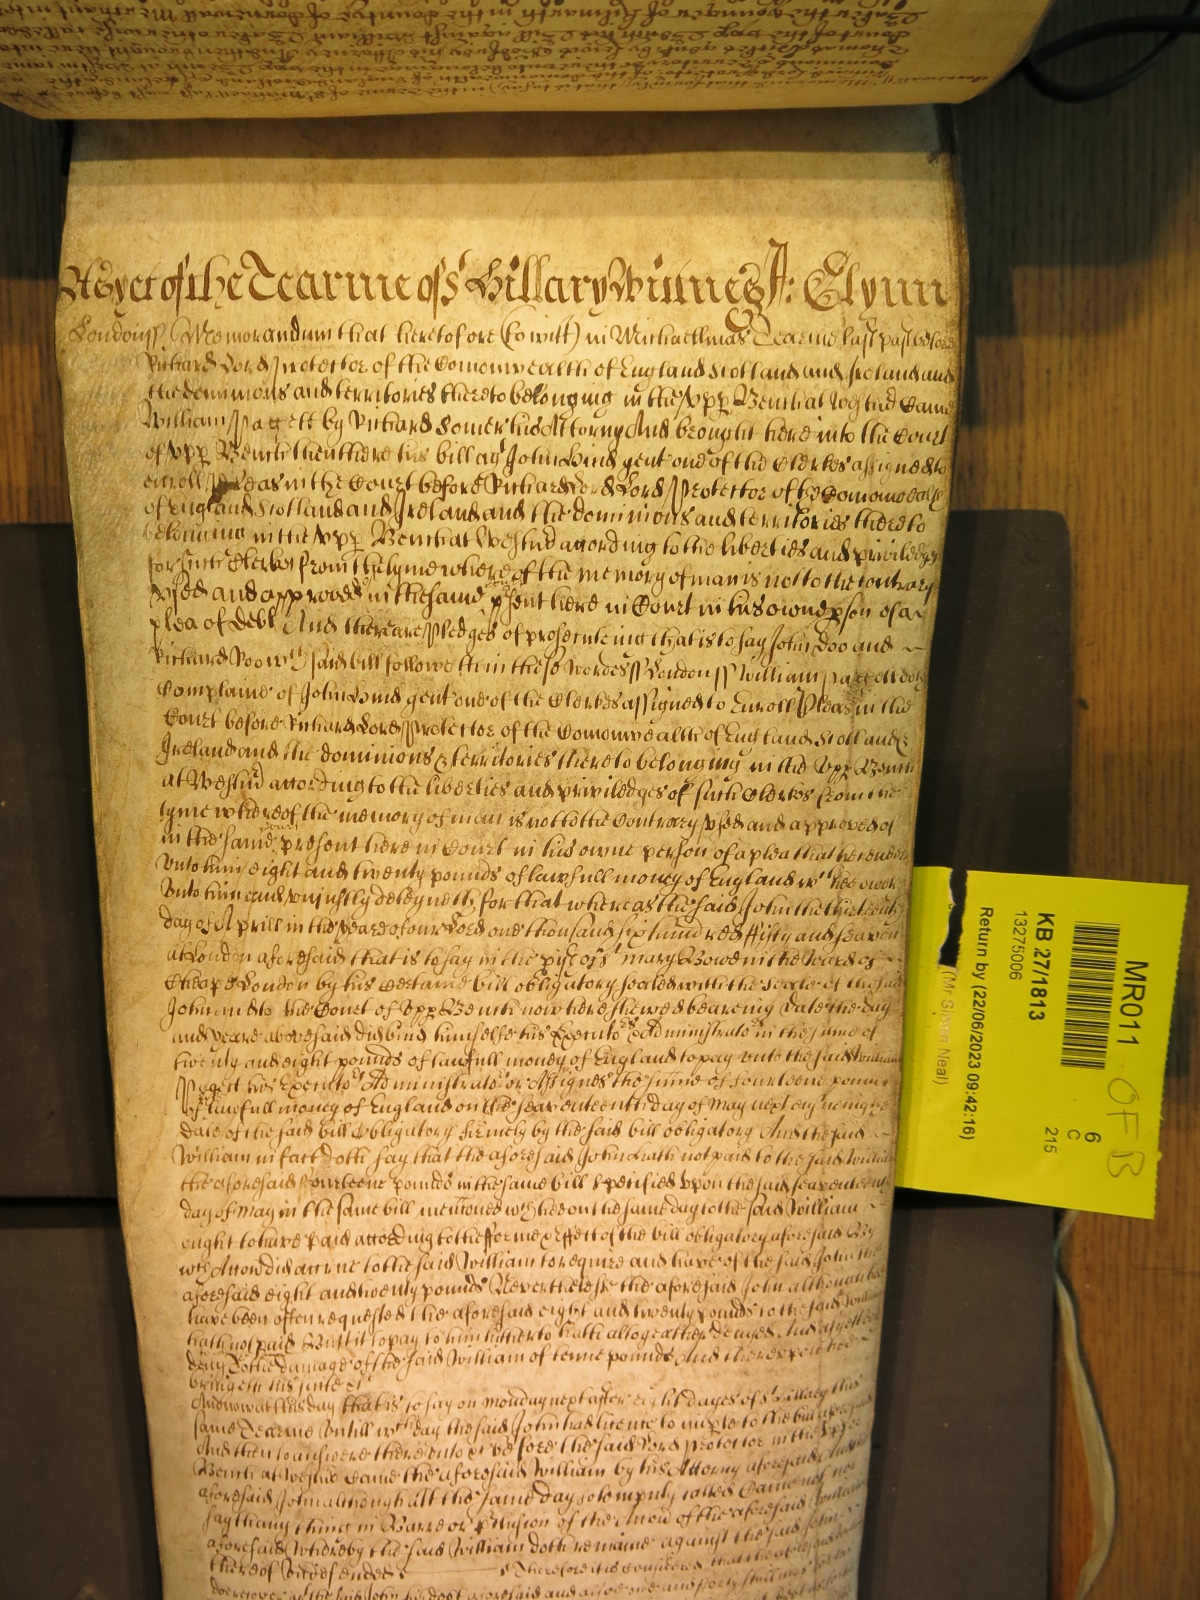 As yet of the Tearme of St Hillary Witnes J: Glynn
London ss Memorandum that heretofore (to witt) in Michaellmas Tearme last past before
Richard Lord Protector of the Comonwealth of England Scotland and Ireland and
the dominions and territories thereto belonging in the Upp Bench at Westmr Came
William Pagett by Richard Somer his Attorny And brought here into the Court
of Upp Bench then there his bill agt John Hind gent one of the Clerkes assigned to
enroll Pleas in the Court before Richard Lord Lord Protector of the Comonwealth
of England Scotland and Ireland and the dominions and territories thereto
belonging in the Upp Bench at Westmr according to the liberties and priviledges
for such Clerkes from the tyme whereof the memory of man is not to the contrary
used and approved in the same psent here in Court in his owne pson of a
plea of debt And there are Pledges of prosecuteing that is to say John Doo and
Richard Roo wch said bill followeth in these wordes ss London ss William Pagett doth
Complaine of John Hind gent one of the Clerkes assigned to Enroll Pleas in the
Court before Richard Lord Protector of the Comonwealth of England Scotland &
Ireland and the dominions & territories thereto belonging in the Upp Bench
at Westmr according to the liberties and priviledges of such Clerkes from the
tyme whereof the memory of man is not to the Contrary used and approved of
in the same Court present here in Court in his owne person of a plea that he render
unto him eight and twenty pounds of lawfull money of England wch he oweth
unto him and uniustly deteyneth for that whereas the said John the thirteenth
day of Aprill in the yeare of our Lord one thousand six hundred fifty and seaven
at London aforesaid that is to say in the pish of St Mary Bowe in the Ward of
Cheape London by his Certaine bill obligatory sealed with the seale of the said
John and to the Court of Upp Bench now here shewed bearing date the day
and yeare abovesaid did bind himselfe his Executors & Administrators in the sume of
twenty and eight pounds of lawfull money of England to pay unto the said William
Pagett his Executors Administrators or Assignes the sume of fourteene pounds
of lawfull money of England on the seaventeenth day of May next ensueing the
date of the said bill obligatory firmely by the said bill obligatory And the said
William in fact doth say that the aforesaid John hath not paid to the said William
the aforesaid fourteene pounds in the same bill specified upon the said seaventeenth
day of May in the same bill mentioned wch hee on the same day to the said William
ought to have paid according to the forme & effect of the bill obligatory aforesaid By
wch Accon did accrue to the said William to require and have of the said John the
aforesaid eight and twenty pounds Neverthelesse the aforesaid John although hee
have been often requested the aforesaid eight and twenty pounds to the said William
hath not paid But it to pay to him hitherto hath altogeather denyed And as yett doth
deny To the damage of the said William of tenne pounds And thereupon hee
bringeth his suite &c
And now at this day that is to say on monday next after eight dayes of St Hillary this
same Tearme Untill wch day the said John had licence to imple to the bill aforesaid
And then to answere thereunto &c before the said Lord Protector in the Upp
Bench at Westmr Came the aforesaid William by his Attorny aforesaid And the
aforesaid John although att the same day solemnly called Came not nor
say thany thing in Barre or p'clusion of the Accon of the aforesaid William
aforesaid Whereby the said William doth remaine against the said John
thereof undefended Therefore it is considered that the aforesaid William
doe recover agt the said John his debt aforesaid and alsoe one and forty shillings
MR011
KB 27/1813
13275006
Return by (22/06/2023 09:42:16)
(Mr Simon Neal)
6
C
215
OF B